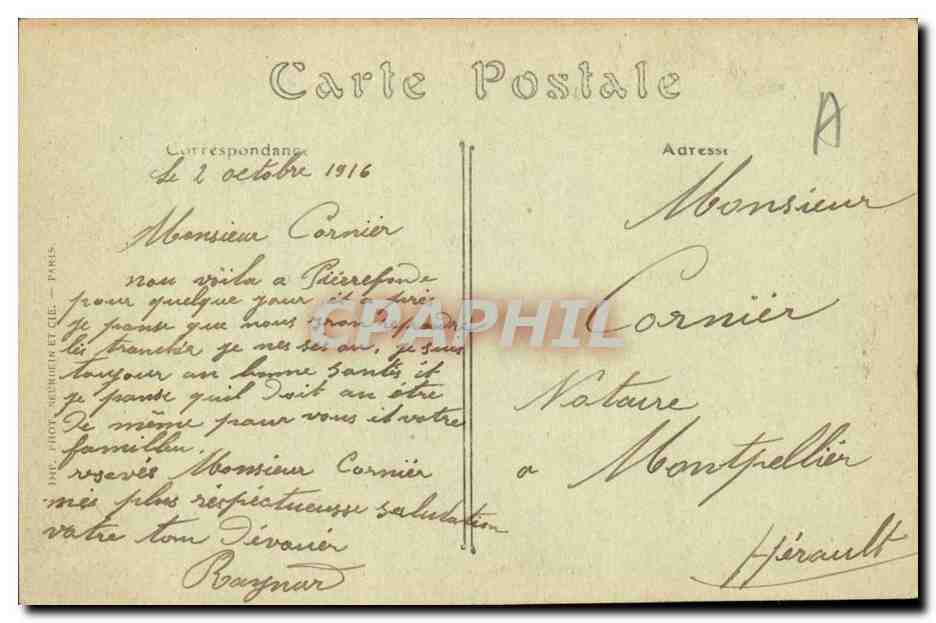 Carte Postale
Correspondance
Adresse
Le 2 octobre 1916
Monsieur Cornier
nou voila a Pierrefonds
pour quelque jour et a pres
je panse que nous iron reprendre
les tranchér je nes ses ou, je suis
toujour an bonne santés et
je panse quil doit an étre
de même pour vous et votre
familleu.
resevés Monsieur Cornier
mes plus réspéctueusse salutation
votre tou dévouér
Raynard
Monsieur
Cornier
Notaire
a Montpellier
Hérault
IMP. PHOT. NEURDEIN ET CIE. — PARIS
CPAPHIL
A